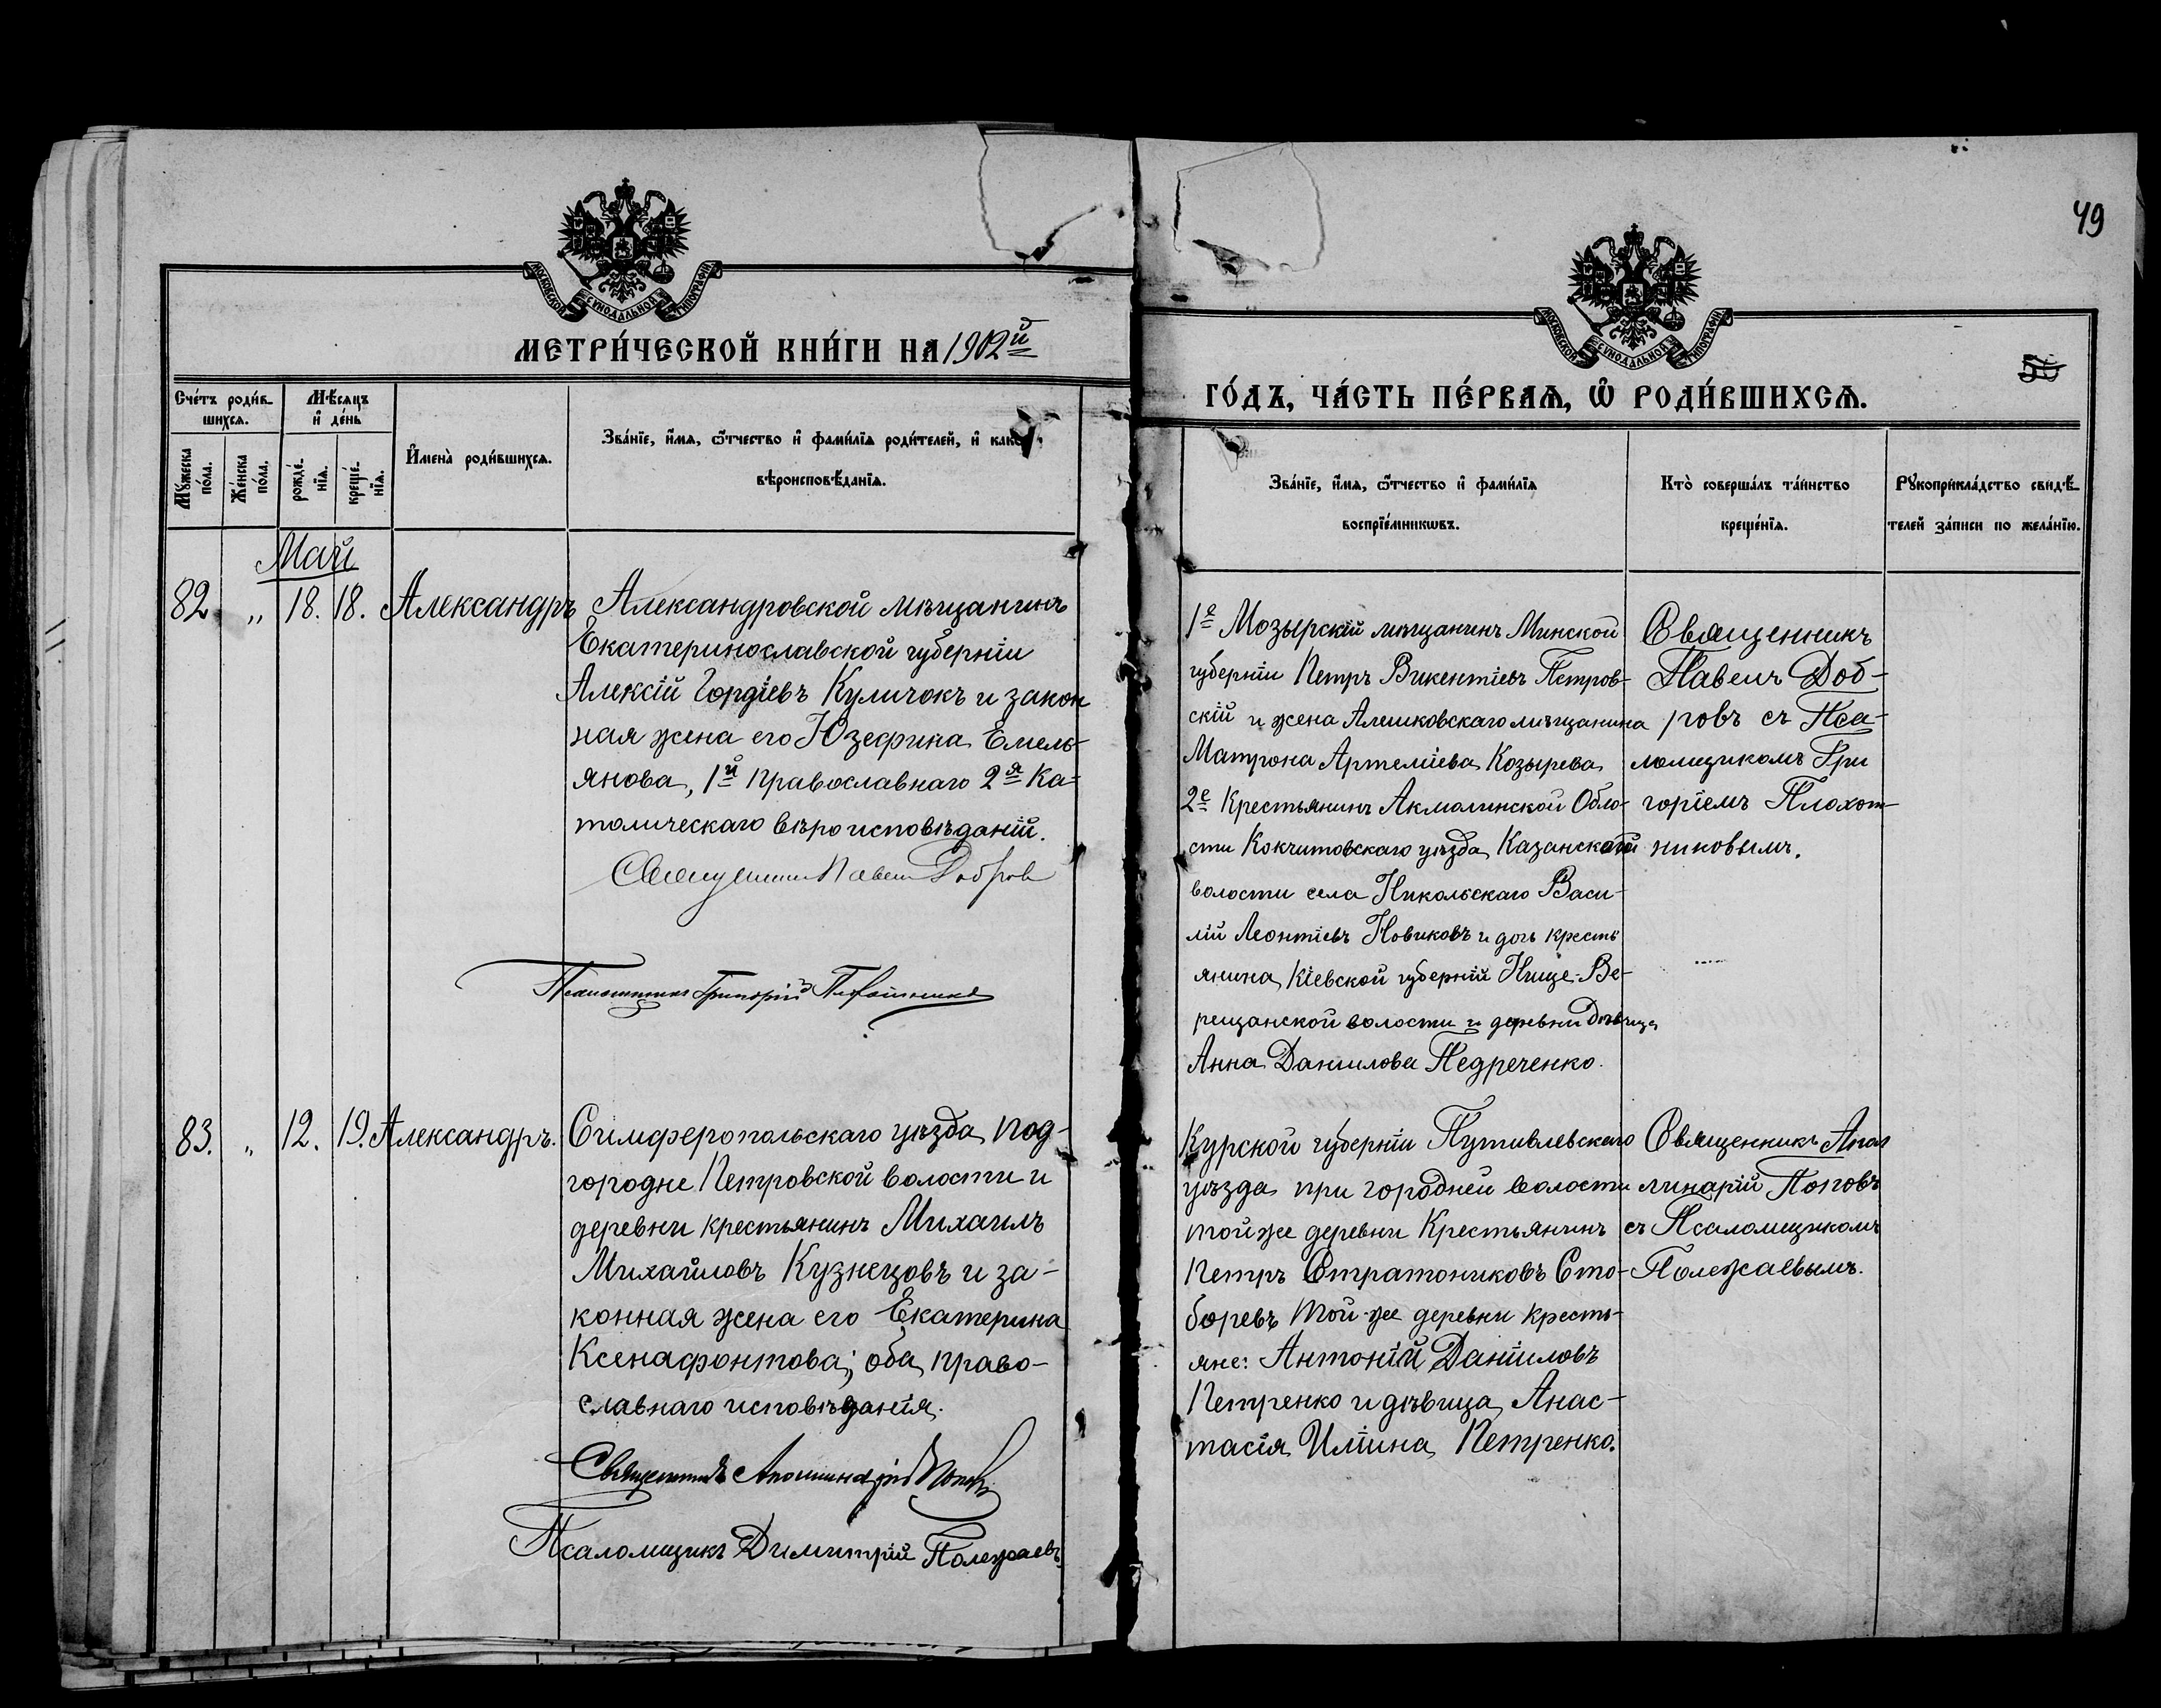 49
МОСКОВСКОЙ СѴНОДАЛЬНОЙ ТИПОГРАФІИ
МЕТРИ́ЧЕСКОЙ КНИ́ГИ НА 1902й
Сче́тъ роди́в-
шихсѧ.
Мꙋ́жеска
по́ла.
Же́нска
по́ла.
Мѣ́сѧцъ
и҆ де́нь
рожде́-
нїѧ.
креще́-
нїѧ.
И҆мена̀ роди́вшихсѧ.
Зва́нїе, и҆́мѧ, ѻ҆́тчество и҆ фами́лїѧ роди́телей, и҆ како
вѣроисповѣ́данїѧ.
Май
82 " 18. 18. Александръ
Александровской мѣщанинъ
Екатеринославской губерніи
Алексій Гордіевъ Куличокъ и закон
ная жена его Юзефина Емель-
янова, 1й Православнаго 2я Ка-
толическаго вѣроисповѣданій.
Священникъ Павелъ Добровъ
Псаломщикъ Григорій Плохотниковъ
83. " 12. 19. Александръ.
Симферопольскаго уѣзда под-
городне Петровской волости и
деревни крестьянинъ Михаилъ
Михайловъ Кузнецовъ и за-
конная жена его Екатерина
Ксенафонтова; оба право-
славнаго исповѣданія.
Священникъ Аполлинарій Поповъ
Псаломщикъ Димитрій Полежаевъ
МОСКОВСКОЙ СѴНОДАЛЬНОЙ ТИПОГРАФІИ
50
ГО́ДЪ, ЧА́СТЬ ПЕ́РВАѦ, Ѽ РОДИ́ВШИХСѦ.
Зва́нїе, и҆́мѧ, ѻ҆́тчество и҆ фами́лїѧ
воспрїе́мникѡвъ.
Кто̀ соверша́лъ та́инство
креще́нїѧ.
Рꙋкоприкла́дство свидѣ́-
телей за́писи по жела́нїю.
1е Мозырскій мѣщанинъ Минской
губерніи Петръ Викентіевъ Петров-
скій и жена Алешковскаго мѣщанина
Матрона Артеміева Козырева
2е Крестьянинъ Акмолинской Обло-
сти Кокчитовскаго уѣзда Казанской
волости села Никольскаго Васи-
лій Леонтіевъ Новиковъ и дочь кресть
янина Кіевской губерній Нище-Ве-
рещанской волости и деревни Дѣвица
Анна Данилова Недреченко.
Священникъ
Павелъ Доб-
ровъ съ Пса-
ломщикомъ Гри
горіемъ Плохот-
никовымъ.
Курской губерніи Путивлевскаго
уѣзда при городней волости
той же деревни Крестьянинъ
Петръ Стратониковъ Сто-
боревъ той-же деревни кресть-
яне: Антоній Даніиловъ
Петренко и дѣвица Анас-
тасія Иліина Петренко.
Священникъ Апол
линарій Поповъ
съ Псаломщикомъ
Полежаевымъ.